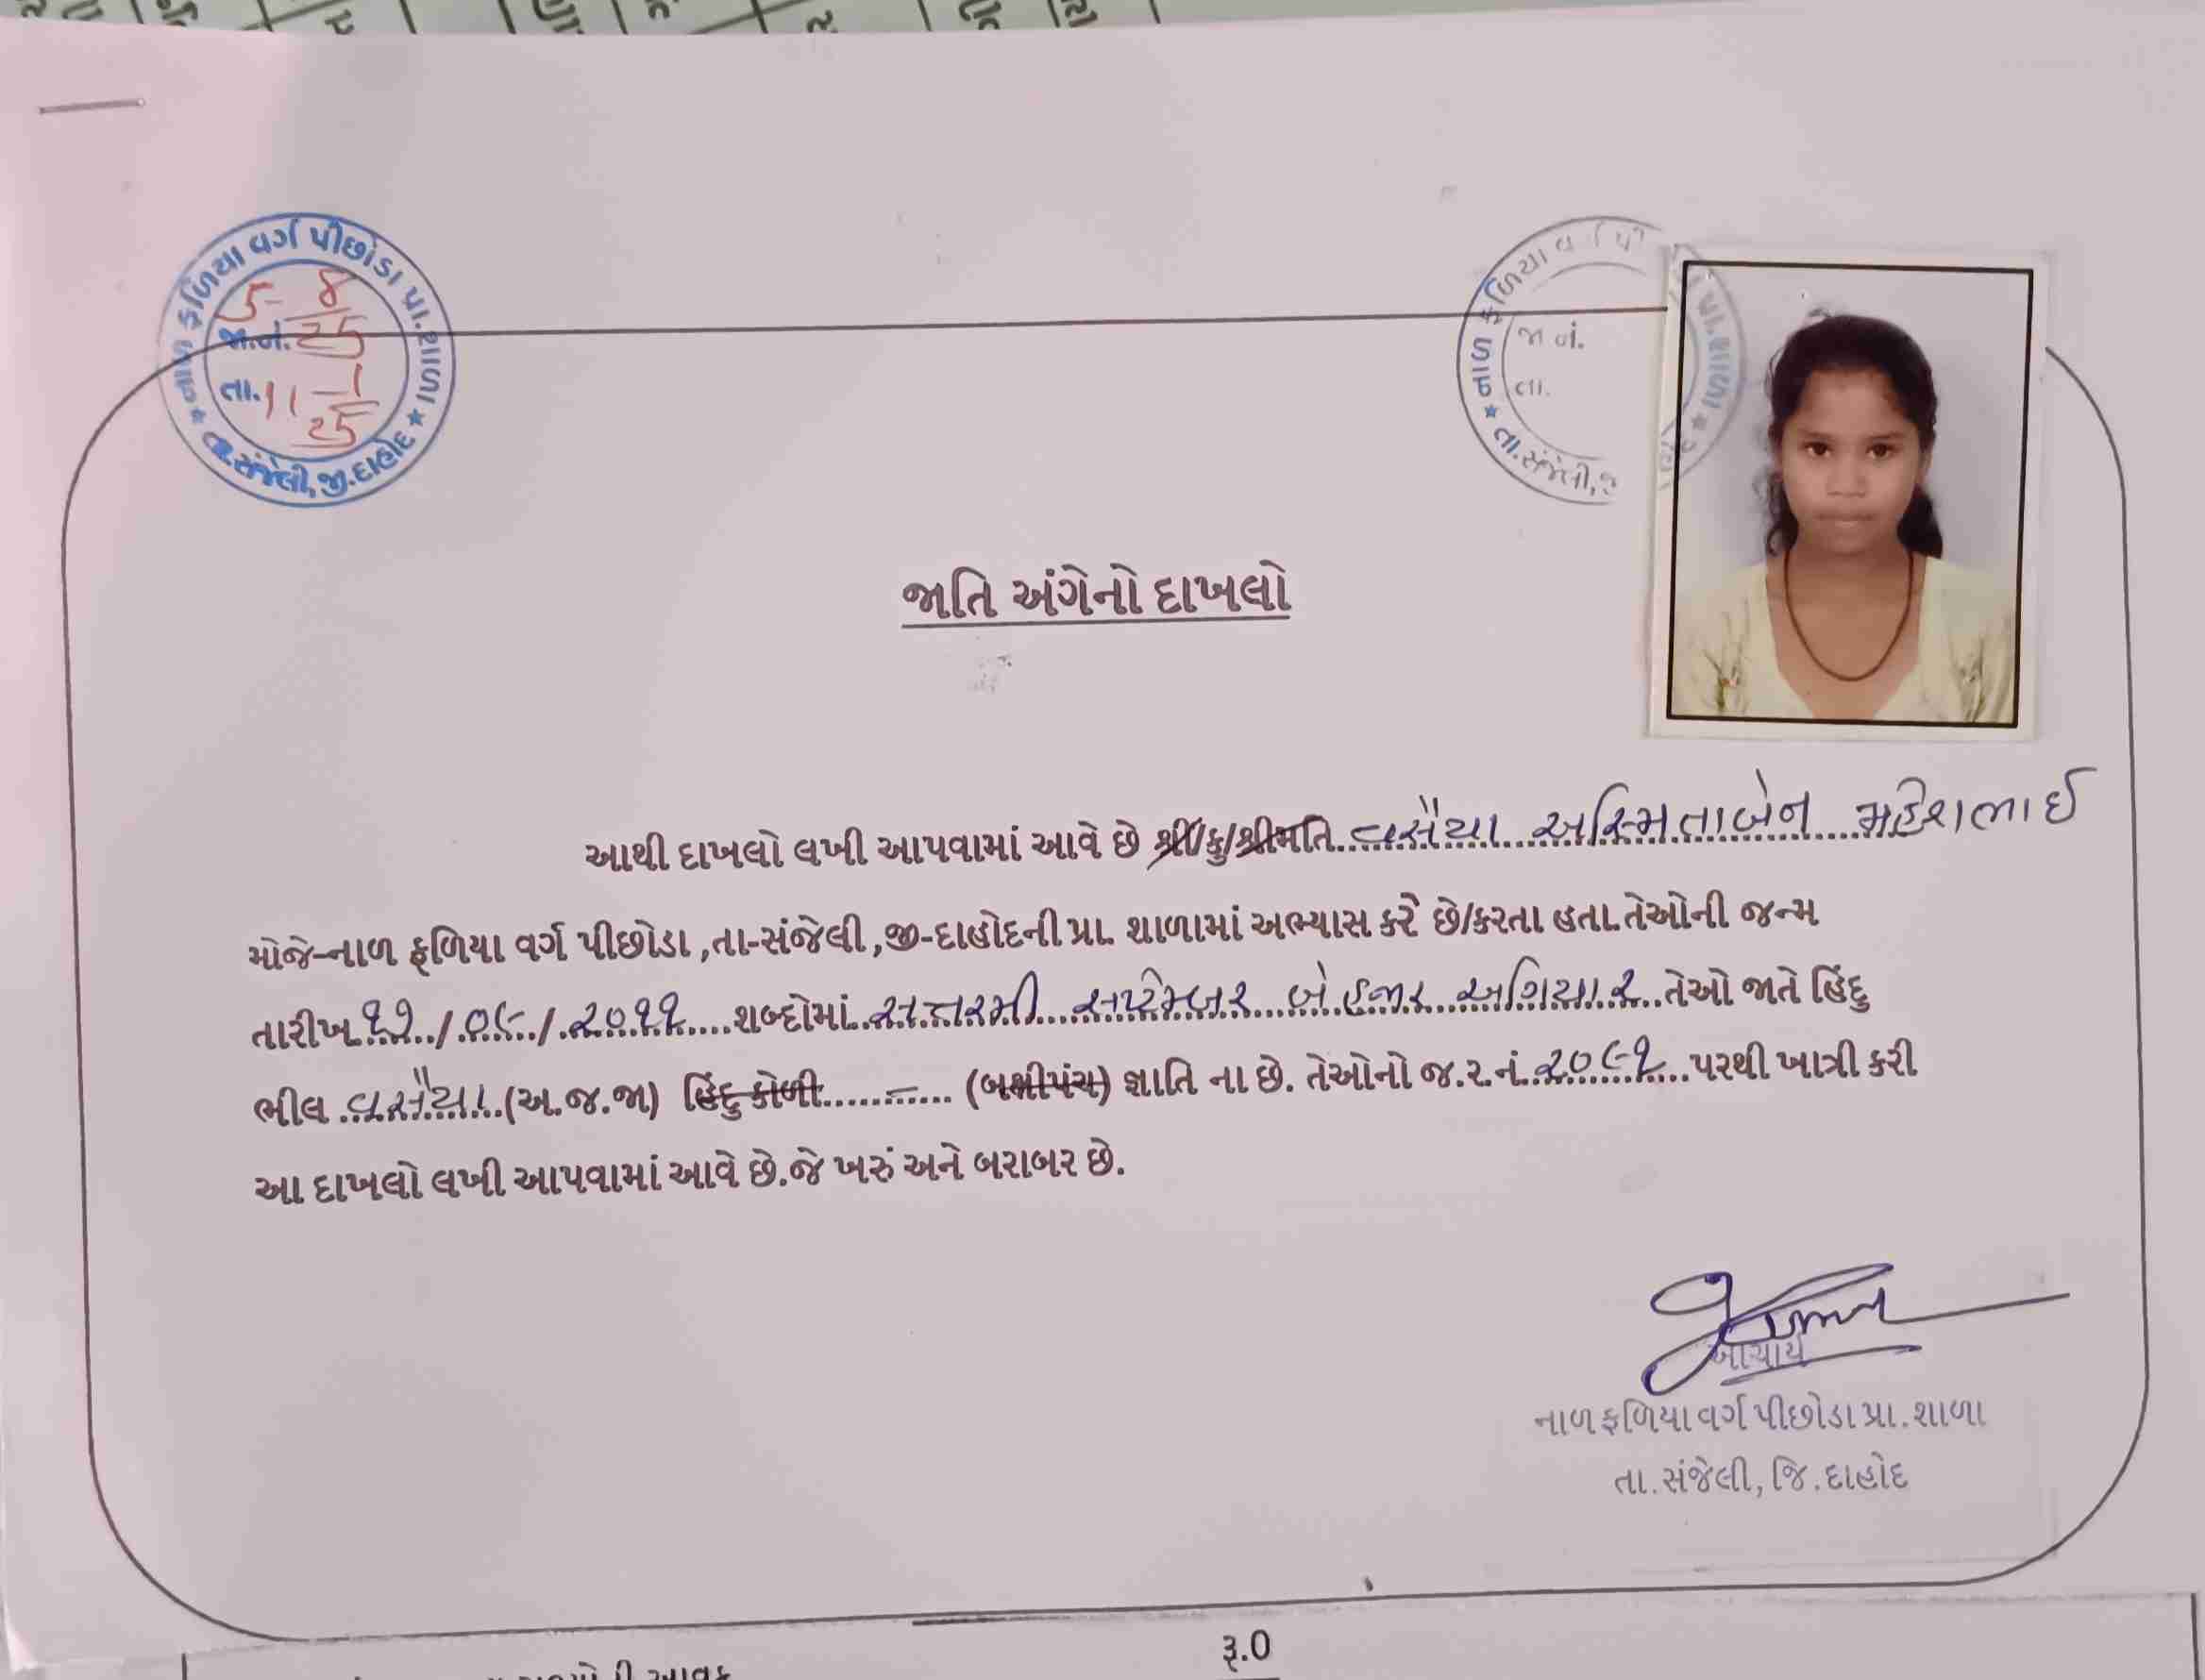 નાળ ફળિયા વર્ગ પીછોડા પ્રા.શાળા
5-8/25
જા.નં.
તા.11-1/25
તા.સંજેલી, જી.દાહોદ
નાળ ફળિયા વ
પ્રા.શાળા
જા નં.
તા.
તા.સંજેલી,
જાતિ અંગેનો દાખલો
આથી દાખલો લખી આપવામાં આવે છે શ્રી/કુ/શ્રીમતિ..વસૈયા અસ્મિતાબેન મહેશભાઈ
મોજે-નાળ ફળિયા વર્ગ પીછોડા ,તા-સંજેલી ,જી-દાહોદની પ્રા. શાળામાં અભ્યાસ કરે છે/કરતા હતા.તેઓની જન્મ
તારીખ..૧૭../.૦૯../.૨૦૧૧....શબ્દોમાં..સત્તરમી....સપ્ટેમ્બર...બે હજાર...અગિયાર..તેઓ જાતે હિંદુ
ભીલ ..વસૈયા..(અ.જ.જા) હિંદુ કોળી............ (બક્ષીપંચ) જ્ઞાતિ ના છે. તેઓનો જ.ર.નં..૨૦૯૧....પરથી ખાત્રી કરી
આ દાખલો લખી આપવામાં આવે છે.જે ખરું અને બરાબર છે.
આચાર્ય
નાળ ફળિયા વર્ગ પીછોડા પ્રા.શાળા
તા.સંજેલી, જિ.દાહોદ
રૂ.0